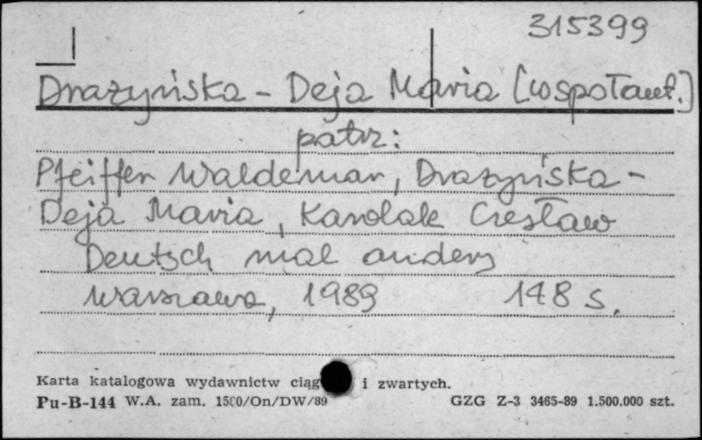 315399
Drażyńska - Deja Maria [współaut.]
patrz:
Pfeiffer Waldemar, Drażyńska -
Deja Maria, Karolak Czesław
Deutsch mal anders
Warszawa, 1989 148 s.
Karta katalogowa wydawnictw ciąg i zwartych.
Pu-B-144 W.A. zam. 1500/On/DW/89 GZG Z-3 3465-89 1.500.000 szt.